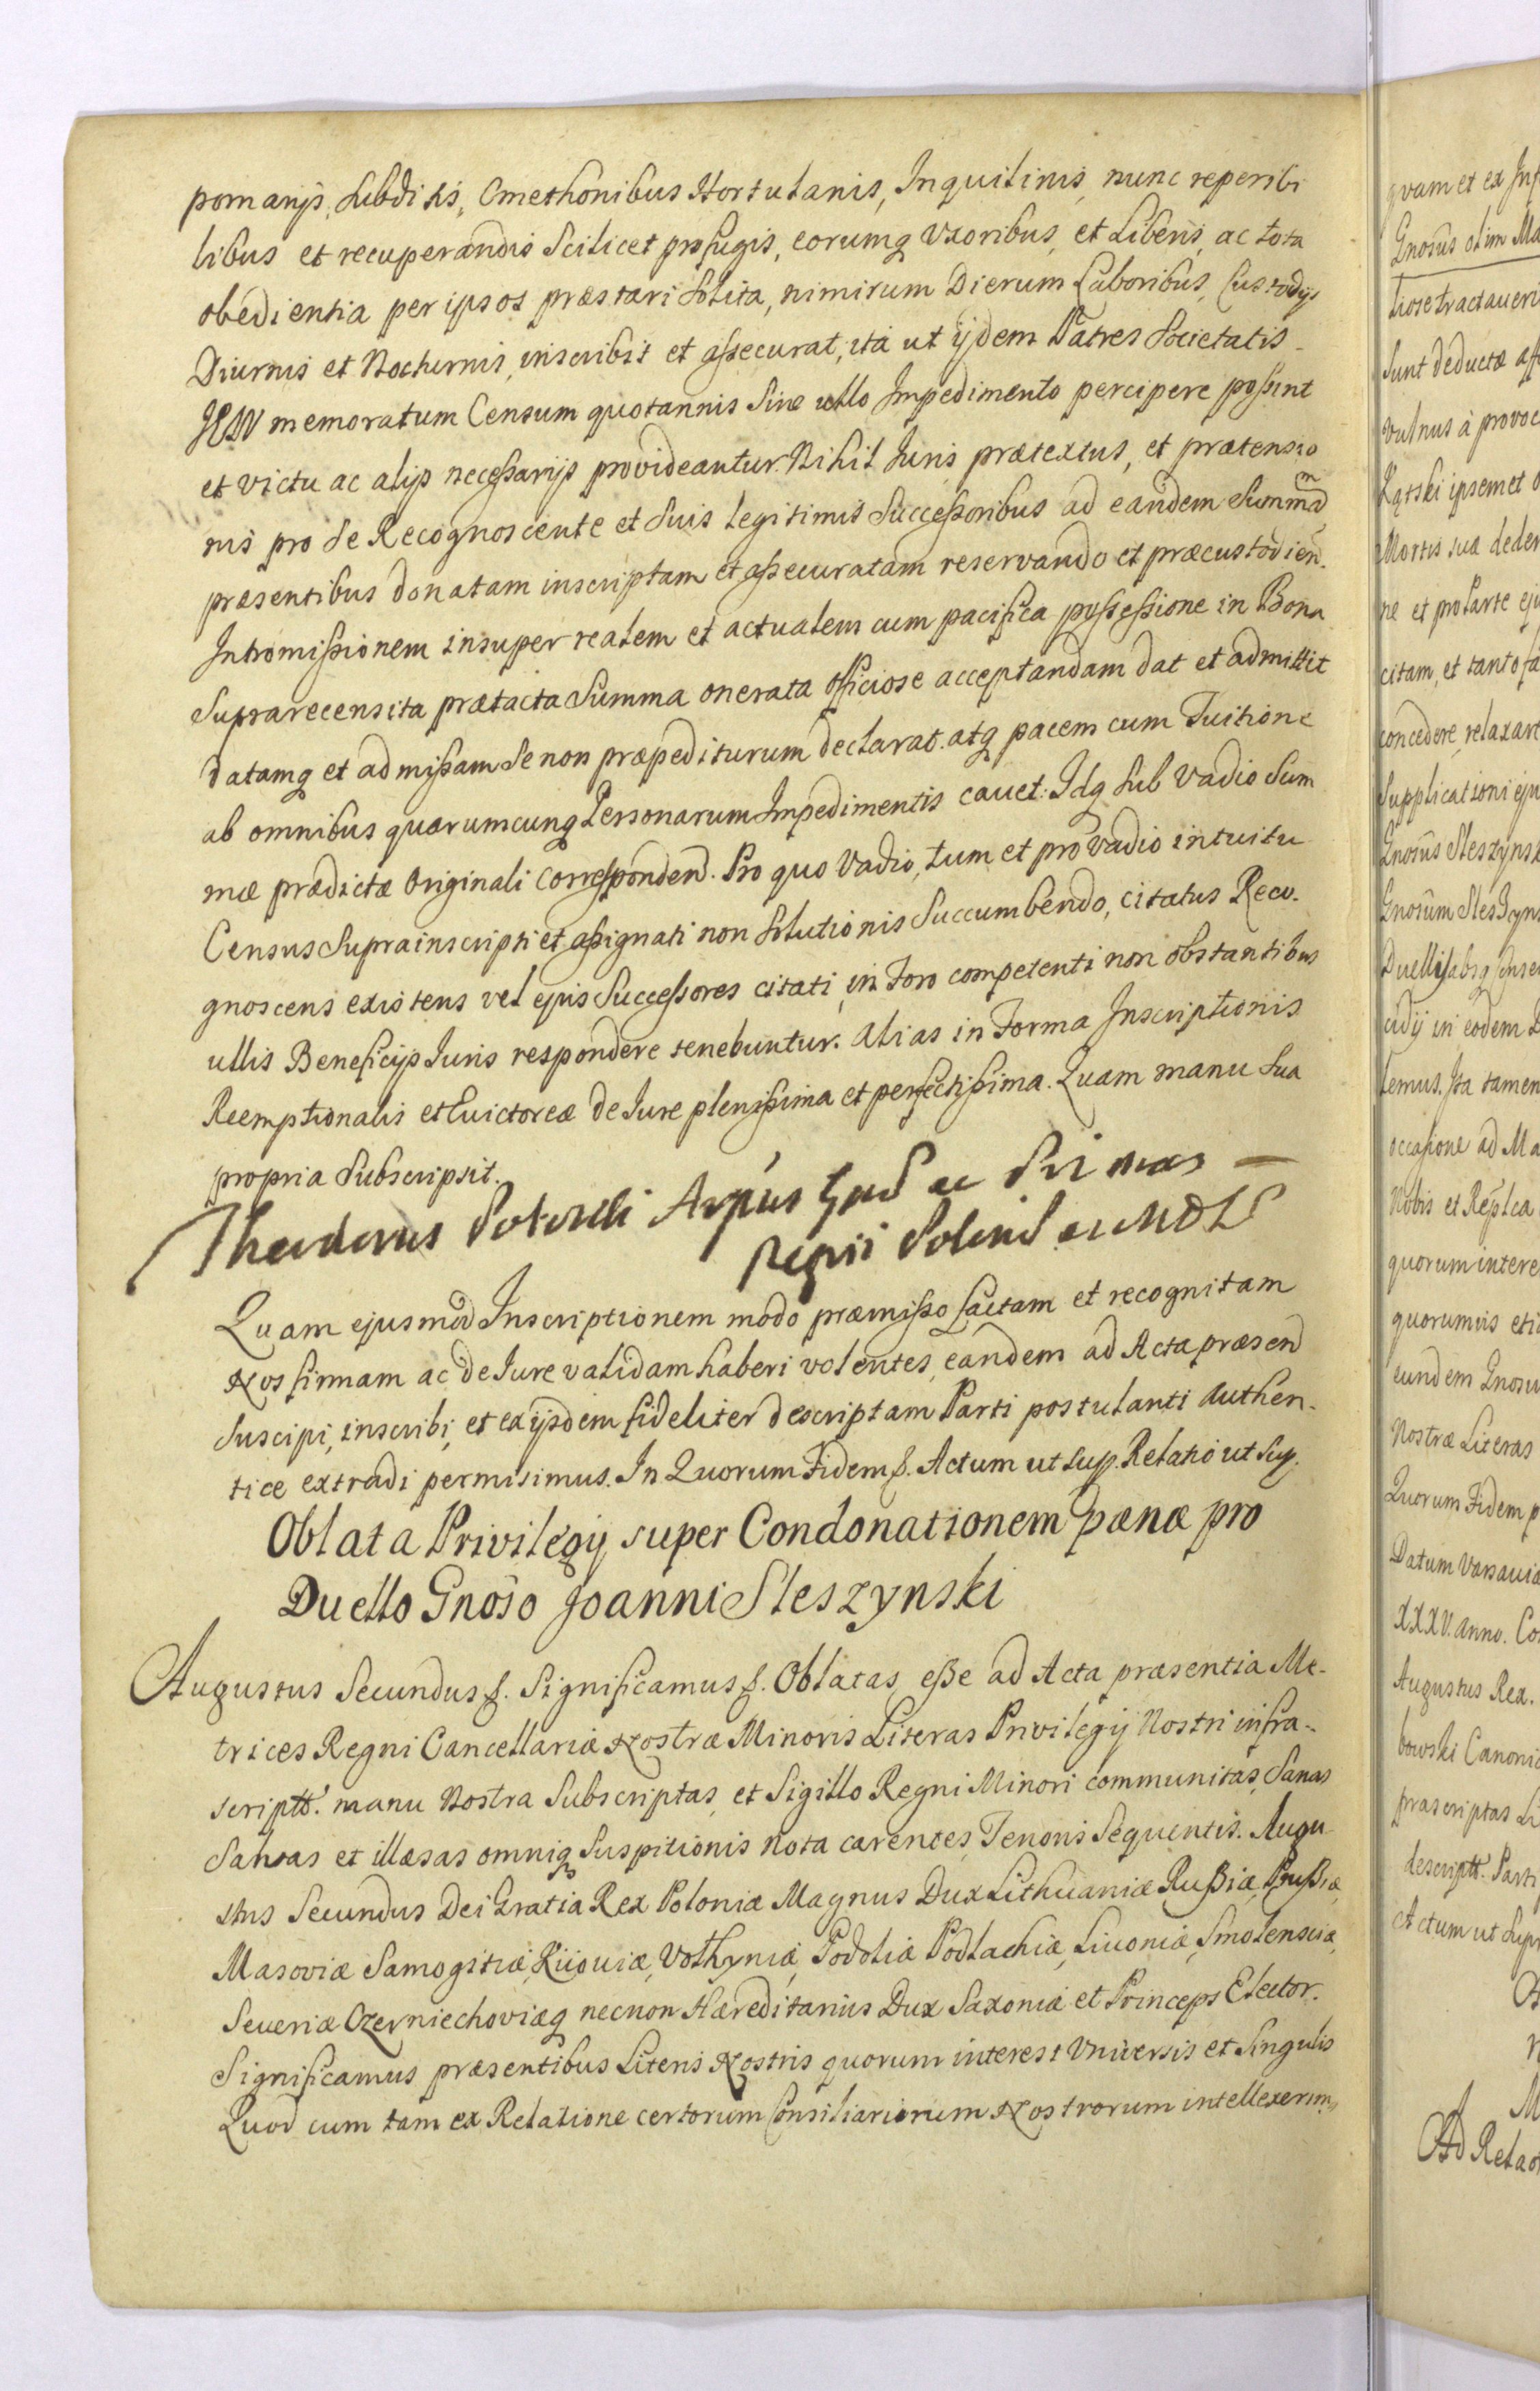 pomarijs, Subditis, Cmethonibus Hortulanis, Inquilinis, nunc reperibi
libus et recuperandis Scilicet profugis, eorumq Uxoribus, et Liberis, ac tota
obedientia per ipsos præstari solita, nimirum Dierum Laboribus, Custodijs
Diurnis et Nocturnis, inscribit et assecurat, ita ut ijdem Patres Societatis
JESU memoratum Censum quotannis Sine ullo Impedimento percipere possint
et victu ac alijs necessarijs provideantur. Nihil Iuris prætextus, et prætensio
nis pro Se Recognoscente et Suis legitimis Successoribus ad eandem Summam
præsentibus donatam inscriptam et assecuratam reservando et præcustodien.
Intromissionem insuper realem et actualem cum pacifica possessione in Bona
Suprarecensita prætacta Summa onerata officiose acceptandam dat et admittit
datamq et admissam Se non præpediturum declarat. atq pacem cum Tuitione
ab omnibus quarumcunq Personarum Impedimentis cavet: Idq Sub Vadio Sum
mæ prædictæ Originali Corresponden. Pro quo Vadio, tum et pro Vadio intuitu
Census Suprainscripti et assignati non Solutionis Succumbendo, citatus Reco-
gnoscens existens vel ejus Successores citati, in Foro competenti non obstantibus
ullis Beneficijs Iuris respondere tenebuntur. Alias in Forma Inscriptionis
Reemptionalis et Evictoreæ de Iure plenissima et perfectissima. Quam manu Sua
propria Subscripsit.
Theodorus Potocki Arpus Gnd ac Primas
Regni Polend et MDL
Quam ejusmod Inscriptionem modo præmisso factam et recognitam
Nos firmam ac de Iure validam haberi volentes, eandem ad Acta præsend
Suscipi, inscribi, et ex ijsdem fideliter descriptam Parti postulanti Authen-
tice extradi permisimus. In Quorum Fidem p. Actum ut Sup. Relatio ut Sup.
Oblata Privilegij super Condonationem pænæ pro
Duello Gnoso Joanni Sleszynski
Augustus Secundus p. Significamus p. Oblatas esse ad Acta præsentia Me-
trices Regni Cancellariæ Nostræ Minoris Literas Privilegij Nostri infra-
scriptt. manu Nostra Subscriptas, et Sigillo Regni Minori communitas, Sanas
Salvas et illæsas omniq Suspitionis nota carentes, Tenoris Sequentis. Augu-
stus Secundus Dei Gratia Rex Poloniæ Magnus Dux Lithuaniæ Russiæ, Prussiæ
Masoviæ Samogitiæ, Kijoviæ, Volhyniæ, Podoliæ Podlachiæ, Livoniæ, Smolensciæ,
Severiæ Czerniechoviæq necnon Hæreditarius Dux Saxoniæ et Princeps Elector.
Significamus præsentibus Literis Nostris quorum interest Universis et Singulis
Quod cum tam ex Relatione certorum Consiliariorum Nostrorum intellexerim,
qvam et ex Inf
Gnosus olim Ma
tiose tractaveri
Sunt deductæ aff
vulnus à provoc
Kątski ipsemet o
Mortis suæ deder
ne et pro Parte eju
citam, et tanto fa
concedere, relaxare
Supplicationi eju
Gnosus Sleszynsk
Gnosum Sleszyns
Duellij absq Inse
cidij in eodem D
lemus. Ita tamen
occasione ad Ma
Nobis et Replca
quorum intere
quorumvis etia
eundem Gnosu
Nostræ Literas
Quorum Fidem p
Datum Varsaviæ
XXXV. anno. Co
Augustus Rex.
bowski Canonic
præscriptas Li
descriptt. Parti
Actum ut Supr
M
Ad Relao